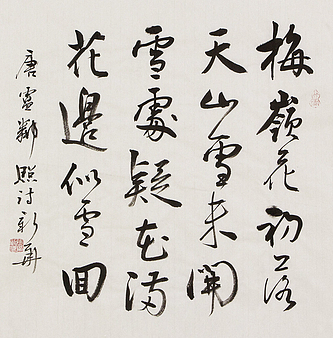 梅嶺花初落
天山雪未開
雪處疑花滿
花邊似雪回
唐盧鄰照诗新華